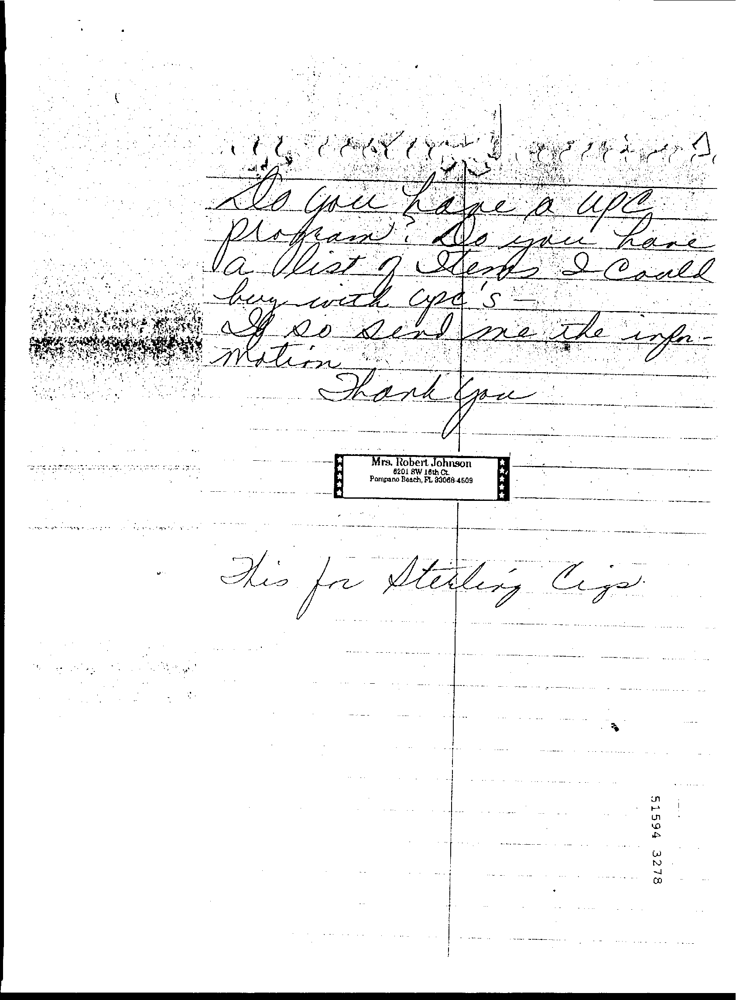 Do you have a upc
program? Do you have
a list of Items I Could
buy with upc's –
If so send me the infor-
mation
Thank You
Mrs. Robert Johnson
6201 SW 16th Ct.
Pompano Beach, FL 33068-4509
This for Sterling Cigs.
51594 3278